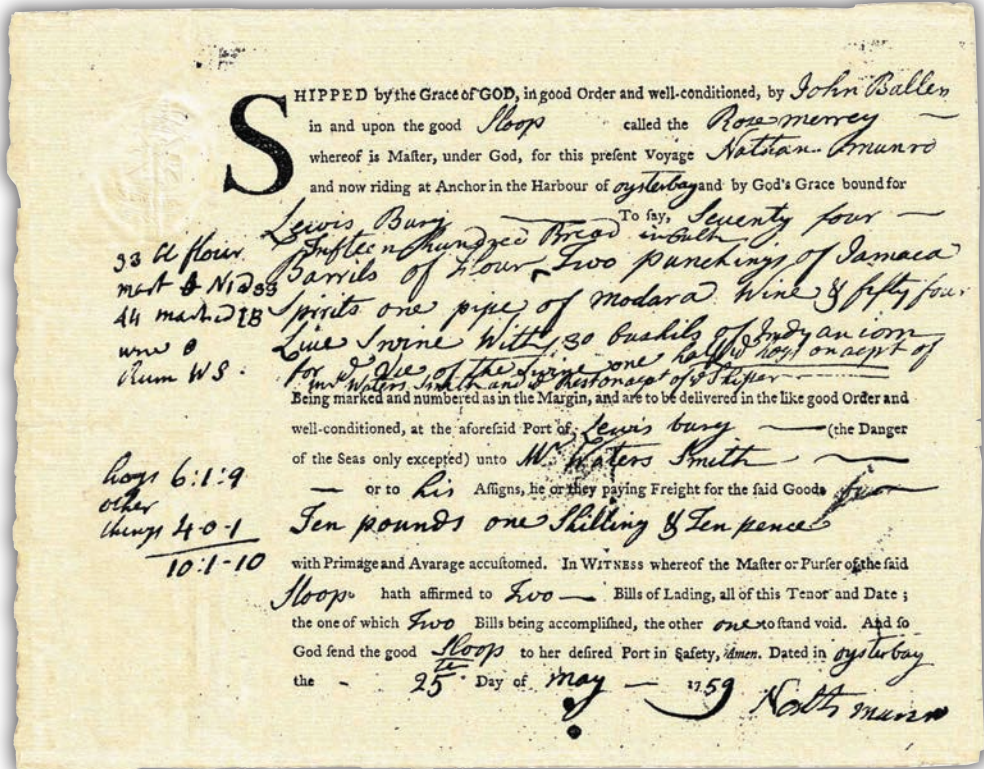 SHIPPED by the Grace of GOD, in good Order and well-conditioned, by John Ballen
in and upon the good Sloop called the Rose merrey
whereof is Maſter, under God, for this preſent Voyage Nathan Munro
and now riding at Anchor in the Harbour of oysterbay and by God's Grace bound for
Lewis Burg To ſay, Seventy four
Hundred Bread in bulk
Barrils of flour Two punchings of Jamaca
Spirits one pipe of modara Wine & fifty four
Live Swine With 30 bushils of Indyan corn
for ye Use of the Swine one half ye hogs on acpt of
mr Waters Smith and ye Rest on acpt of ye Shiper
33 bl flour
mark
44
wine
Rum WS
Being marked and numbered as in the Margin, and are to be delivered in the like good Order and
well-conditioned, at the aforeſaid Port of Lewis burg (the Danger
of the Seas only excepted) unto Mr Waters Smith
or to his Aſſigns, he or they paying Freight for the ſaid Goods
Ten pounds one Shilling & Ten pence
hogs 6:1:9
other
things 4-0-1
10:1-10
with Primage and Avarage accuſtomed. In WITNESS whereof the Maſter or Purſer of the ſaid
Sloop hath affirmed to Two Bills of Lading, all of this Tenor and Date ;
the one of which Two Bills being accompliſhed, the other one to ſtand void. And ſo
God ſend the good Sloop to her deſired Port in Safety, Amen. Dated in oysterbay
the 25 Day of may 1759
Nath munro